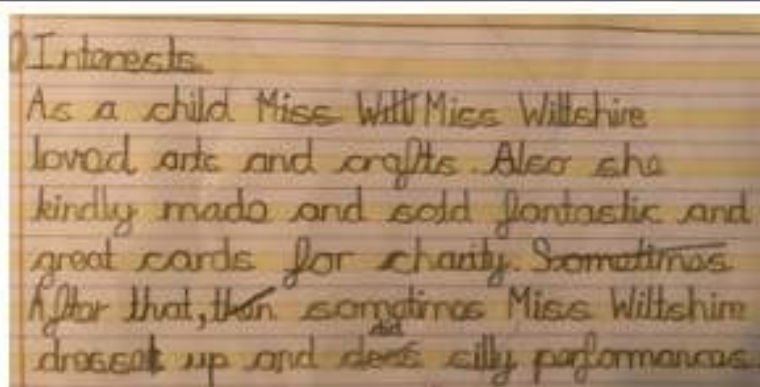 Interests
As a child Miss Will Miss Wiltshire
loved arts and crafts. Also she
kindly made and sold fantastic and
great cards for charity. Sometimes
After that, then sometimes Miss Wiltshire
did
dressed up and does silly performances